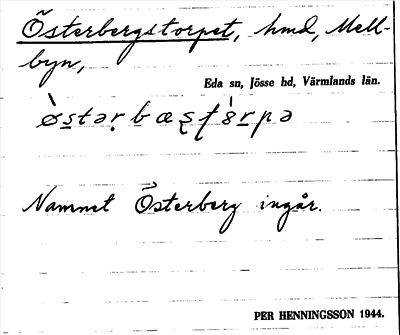 Österbergstorpet, hmd, Mell-
byn,
Eda sn, Jösse hd, Värmlands län.
Namnet Österberg ingår.
PER HENNINGSSON 1944.